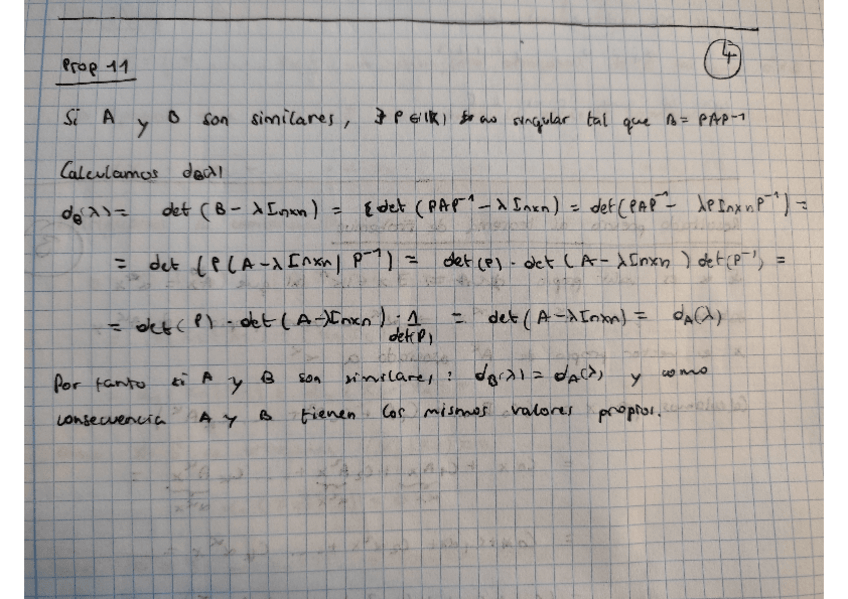 Prop 11
4
Si A y B son similares, ∃ P ∈ (K) no singular tal que B = PAP⁻¹
Calculamos d_B(λ)
d_B(λ) = det (B - λ Inxn) = det (PAP⁻¹ - λ Inxn) = det (PAP⁻¹ - λP Inxn P⁻¹) =
= det (P (A - λ Inxn) P⁻¹) = det (P) · det (A - λInxn) det (P⁻¹) =
= det (P) · det (A - λInxn) · 1/det(P) = det (A - λ Inxn) = d_A(λ)
Por tanto si A y B son similares: d_B(λ) = d_A(λ) y como
consecuencia A y B tienen los mismos valores propios.